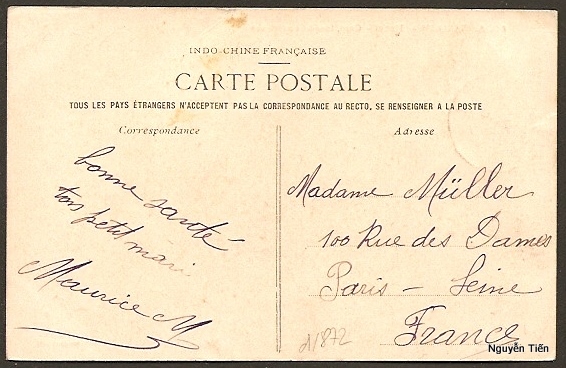 INDO-CHINE FRANÇAISE
CARTE POSTALE
TOUS LES PAYS ÉTRANGERS N'ACCEPTENT PAS LA CORRESPONDANCE AU RECTO, SE RENSEIGNER A LA POSTE
Correspondance
bonne santé
ton petit mari
Maurice M
Adresse
Madame Müller
100 Rue des Dames
Paris - Seine
France
d/872
Nguyễn Tiến